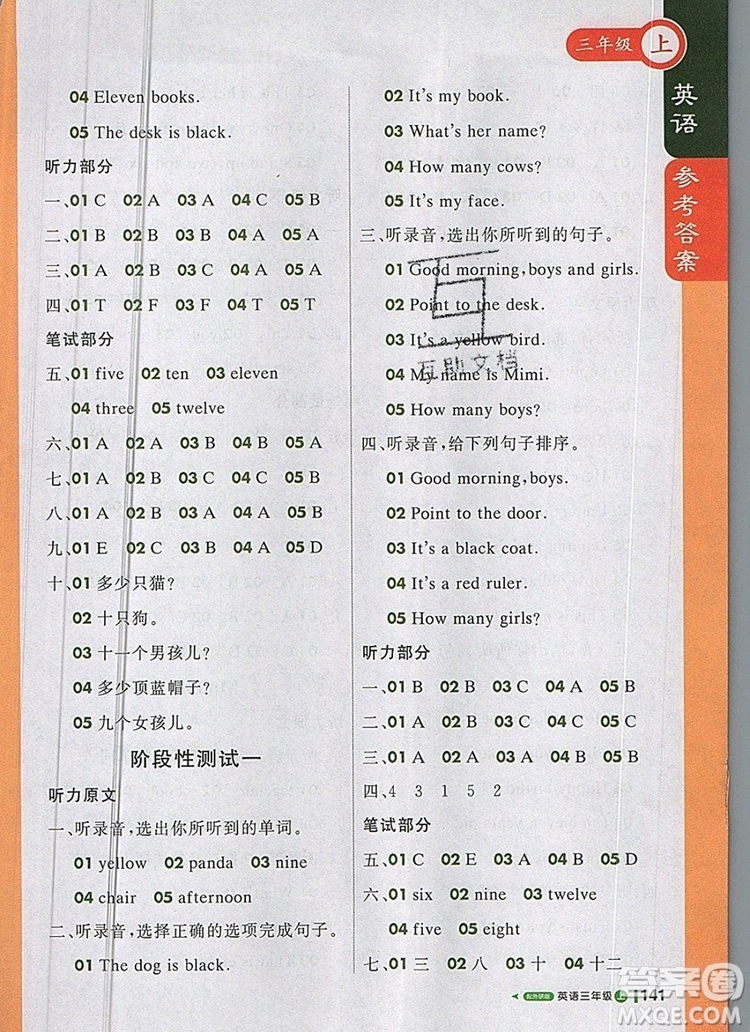 三年级 上
英语
参考答案
04 Eleven books.
05 The desk is black.
听力部分
一、01 C 02 A 03 A 04 C 05 B
二、01 B 02 B 03 A 04 B 05 A
三、01 A 02 A 03 B 04 A 05 B
四、01 T 02 F 03 F 04 T 05 F
笔试部分
五、01 five 02 ten 03 eleven
04 three 05 twelve
六、01 A 02 A 03 B 04 B 05 B
七、01 A 02 A 03 B 04 A 05 B
八、01 A 02 B 03 A 04 A 05 A
九、01 E 02 C 03 B 04 A 05 D
十、01 多少只猫?
02 十只狗。
03 十一个男孩儿?
04 多少顶蓝帽子?
05 九个女孩儿。
阶段性测试一
听力原文
一、听录音,选出你所听到的单词。
01 yellow 02 panda 03 nine
04 chair 05 afternoon
二、听录音,选择正确的选项完成句子。
01 The dog is black.
02 It's my book.
03 What's her name?
04 How many cows?
05 It's my face.
三、听录音,选出你所听到的句子。
01 Good morning,boys and girls.
02 Point to the desk.
03 It's a yellow bird.
04 My name is Mimi.
05 How many boys?
四、听录音,给下列句子排序。
01 Good morning,boys.
02 Point to the door.
03 It's a black coat.
04 It's a red ruler.
05 How many girls?
听力部分
一、01 B 02 B 03 C 04 A 05 B
二、01 A 02 B 03 B 04 A 05 B
三、01 A 02 B 03 A 04 A 05 B
四、4 3 1 5 2
笔试部分
五、01 C 02 E 03 B 04 A 05 D
六、01 six 02 nine 03 twelve
04 five 05 eight
七、三 二 八 十 十二
配外研版 英语三年级 上 141
互助文档
答案圈
MXQE.COM